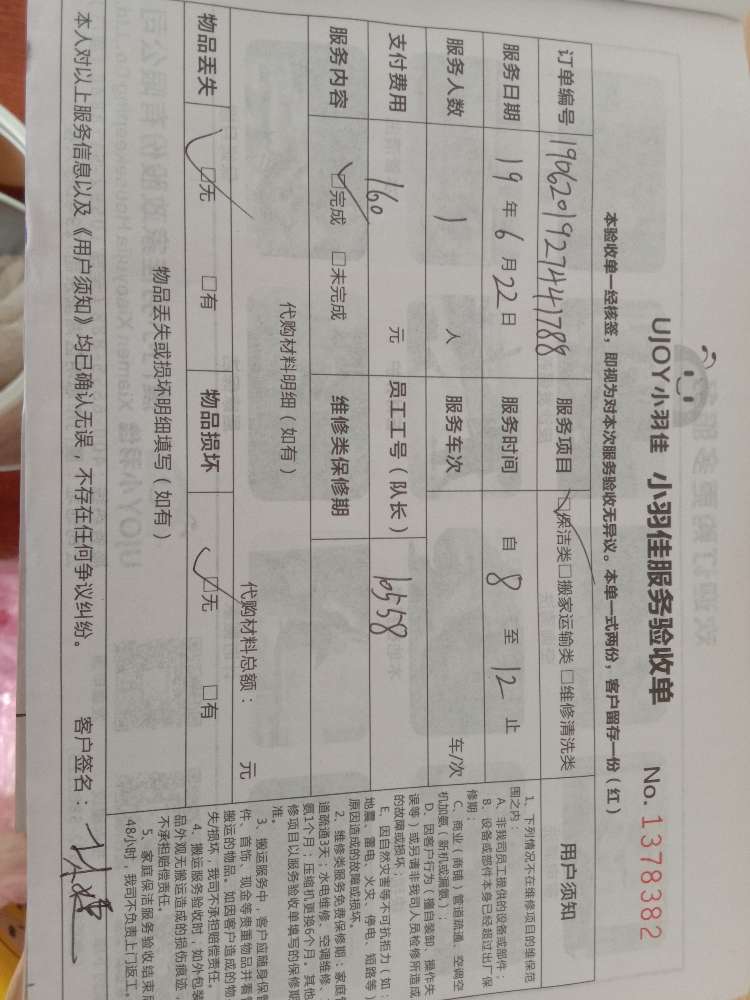 UJOY小羽佳 小羽佳服务验收单 No.1378382
本验收单一经核签，即视为对本次服务验收无异议。本单一式两份，客户留存一份（红）
订单编号 190620192744 服务项目 □保洁类□搬家运输类 □维修清洗类
服务日期 19 年 6 月 22 日 服务时间 自 8 至 12 止
服务人数 1 人 服务车次 车/次
支付费用 160 元 员工工号（队长） 10558
服务内容 □完成 □未完成 维修类保修期
代购材料明细（如有） 代购材料总额： 元
物品丢失 □无 □有 物品损坏 □无 □有
物品丢失或损坏明细填写（如有）
本人对以上服务信息以及《用户须知》均已确认无误，不存在任何争议纠纷。 客户签名：
用户须知
1、下列情况不在维修项目的维保范
围之内
A、非我司员工提供的设备或部件；
B、设备或部件本身已经超过出厂保
修期；
C、商业（商铺）管道疏通、空调空
机加氨（新机或漏氨）；
D、因客户行为（擅自装卸、操作失
误等）或另请非我司人员检修所造成
的故障或损坏；
E、因自然灾害等不可抗拒力（如：
地震、雷电、火灾、停电、短路等）
原因造成的故障或损坏。
2、维修类服务免费保修期：家庭
道疏通3天；水电维修、空调维修、
氨1个月；压缩机更换6个月。其他
修项目以服务验收单填写的保修期
准。
3、搬运服务中，客户应随身保管
件、首饰、现金等贵重物品并看
搬运的物品，如因客户造成的物
失/损坏，我司不承担赔偿责任。
4、搬运服务验收时，如外包装
品外观无搬运造成的损伤痕迹，
不承担赔偿责任。
5、家庭保洁服务验收结束后
48小时，我司不负责上门返工。